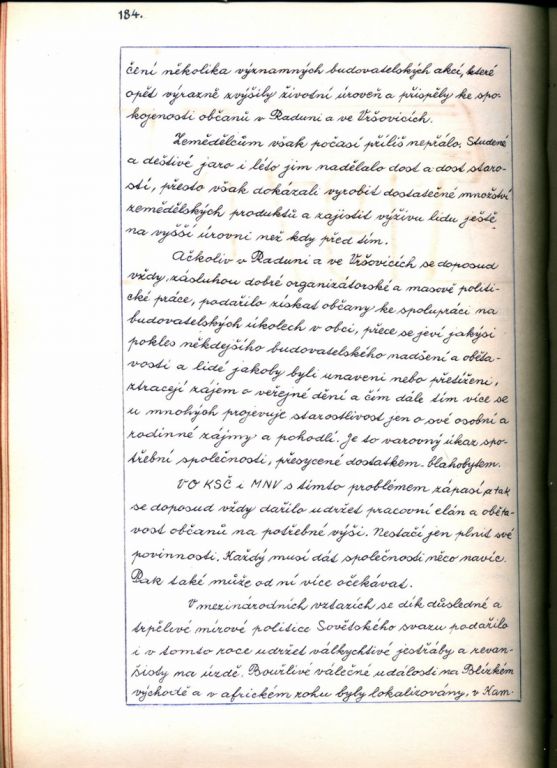 184.
čení několika významných budovatelských akcí, které
opět výrazně zvýšily životní úroveň a přispěly ke spo-
kojenosti občanů v Raduni a ve Vršovicích.
Zemědělcům však počasí příliš nepřálo. Studené
a deštivé jaro i léto jim nadělalo dost a dost staro-
stí, přesto však dokázali vyrobit dostatečné množství
zemědělských produktů a zajistit výživu lidu ještě
na vyšší úrovni než kdy před tím.
Ačkoliv v Raduni a ve Vršovicích se doposud
vždy, zásluhou dobré organizátorské a masově politi-
cké práce, podařilo získat občany ke spolupráci na
budovatelských úkolech v obci, přece se jeví jakýsi
pokles někdejšího budovatelského nadšení a oběta-
vosti a lidé jakoby byli unaveni nebo přetíženi,
ztracejí zájem o veřejné dění a čím dále tím více se
u mnohých projevuje starostlivost jen o své osobní a
rodinné zájmy a pohodlí. Je to varovný úkaz spo-
třební společnosti, přesycené dostatkem - blahobytem.
VO KSČ i MNV s tímto problémem zápasí, a tak
se doposud vždy dařilo udržet pracovní elán a oběta-
vost občanů na potřebné výši. Nestačí jen plnit své
povinnosti. Každý musí dát společnosti něco navíc.
Pak také může od ní více očekávat.
V mezinárodních vztazích se dík důsledné a
trpělivé mírové politice Sovětského svazu podařilo
i v tomto roce udržet válkychtivé jestřáby a revan-
šisty na uzdě. Bouřlivé válečné události na Blízkém
východě a v africkém rohu byly lokalizovány, v Kam-